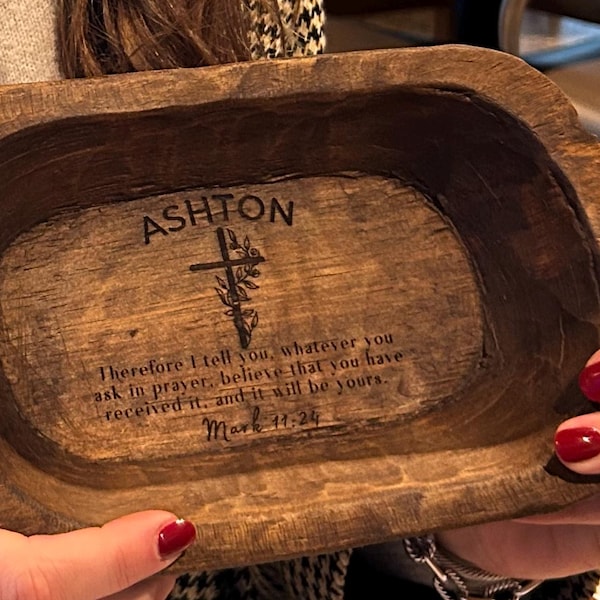 ASHTON
Therefore I tell you, whatever you
ask in prayer, believe that you have
received it, and it will be yours.
Mark 11:24